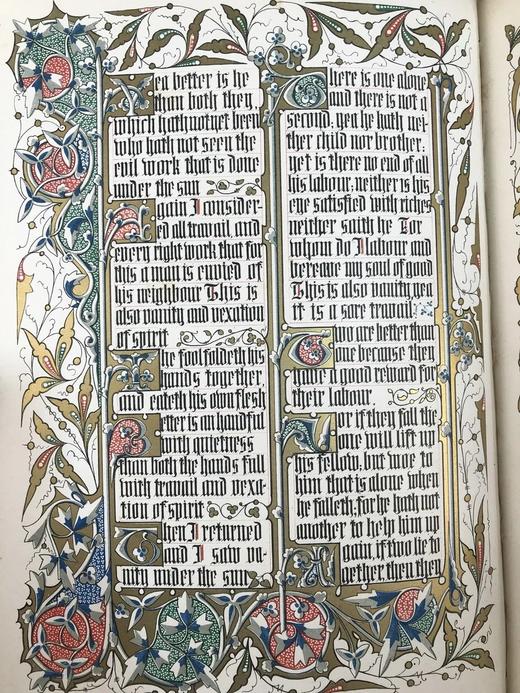 Yea better is he
than both they,
which hath not yet been
who hath not seen the
evil work that is done
under the sun
Again I consider-
ed all travail, and
every right work that for
this a man is envied of
his neighbour This is
also vanity and vexation
of spirit
The fool foldeth his
hands together,
and eateth his own flesh
Better is an handful
with quietness
than both the hands full
with travail and vexa
tion of spirit
Then I returned
and I saw va-
nity under the sun
There is one alone
and there is not a
second: yea he hath nei-
ther child nor brother.
yet is there no end of all
his labour, neither is his
eye satisfied with riches
neither saith he For
whom do I labour and
bereave my soul of good
This is also vanity yea
it is a sore travail
Two are better than
one because they
have a good reward for
their labour.
For if they fall the
one will lift up
his fellow, but woe to
him that is alone when
he falleth; for he hath not
another to help him up
Again, if two lie to
gether, then they